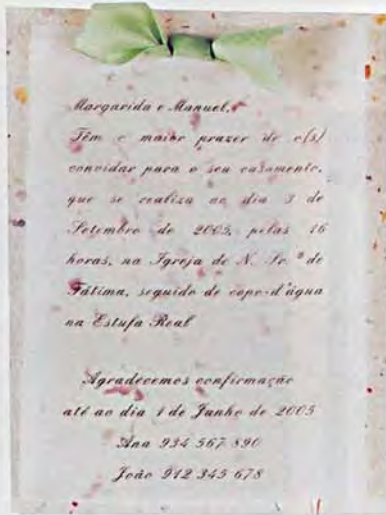 Margarida e Manuel,
Têm o maior prazer de o(s)
convidar para o seu casamento,
que se realiza ao dia 3 de
Setembro de 2005, pelas 16
horas, na Igreja de N. Sr.ª de
Fátima, seguido de copo-d'água
na Estufa Real
Agradecemos confirmação
até ao dia 1 de Junho de 2005
Ana 934 567 890
João 912 345 678